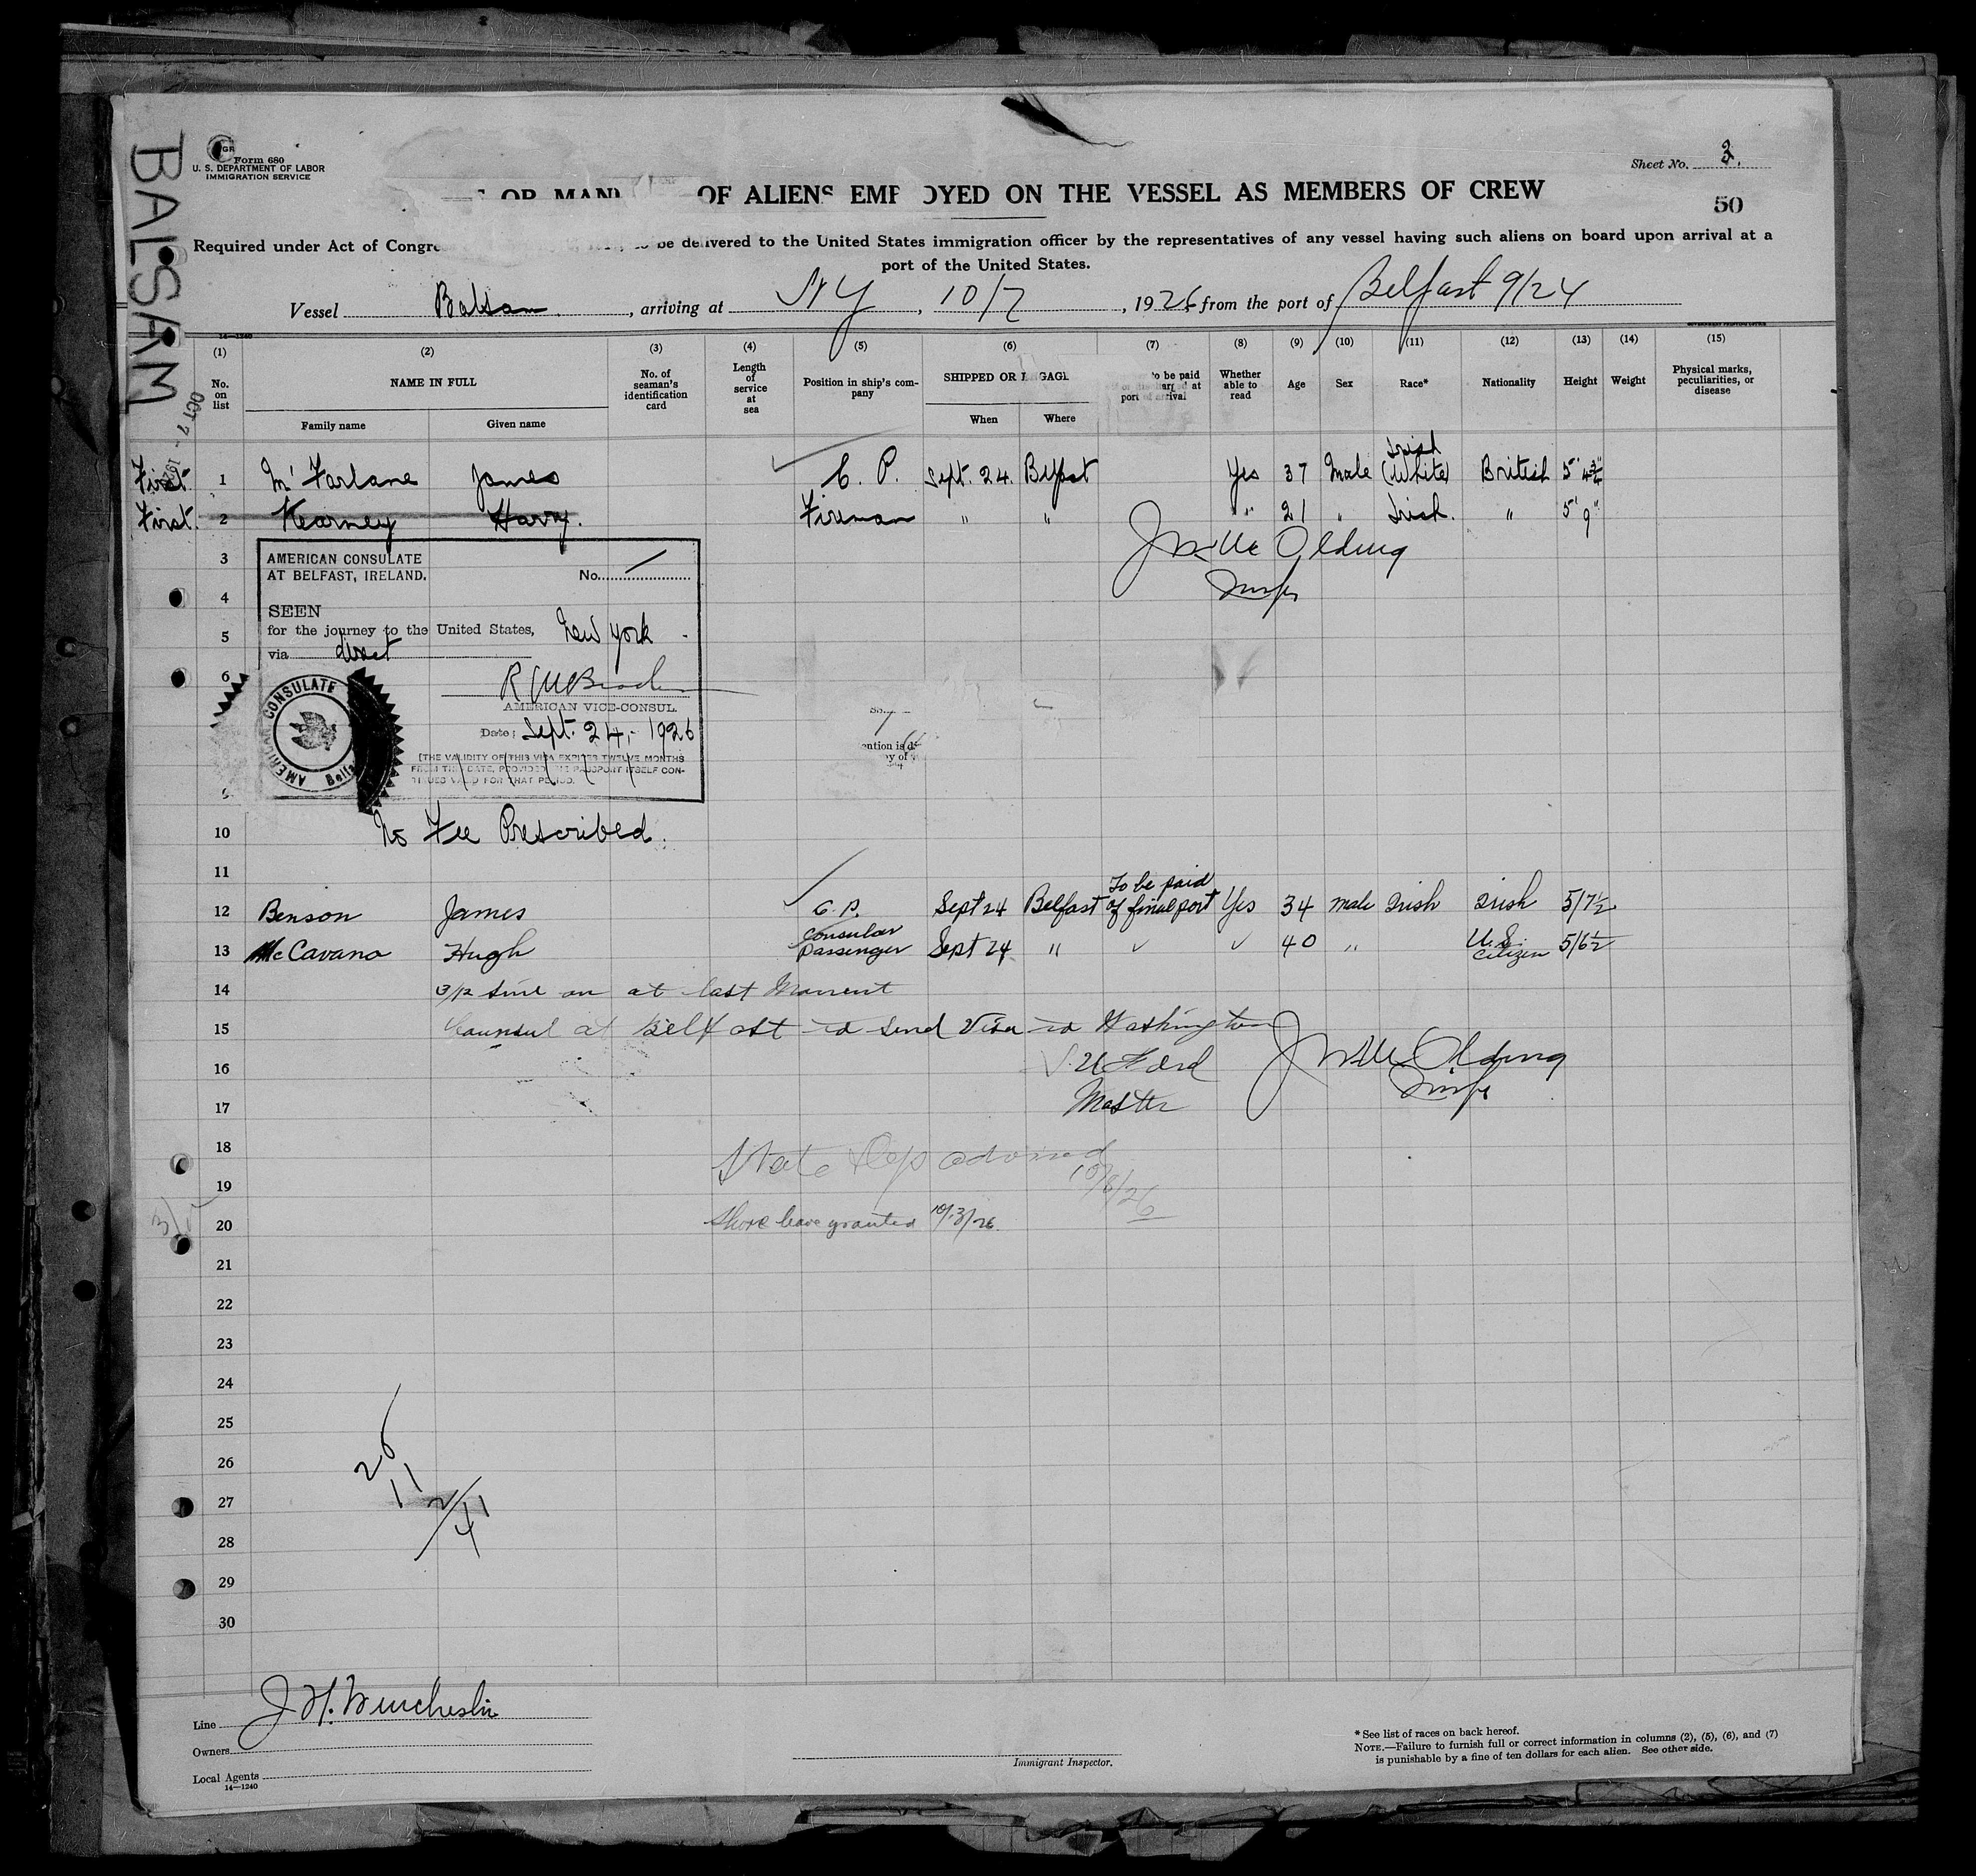 BALSAM
OCT 7 - 1926
Form 680
U. S. DEPARTMENT OF LABOR
IMMIGRATION SERVICE
Sheet No. 3.
OR MANI OF ALIENS EMP OYED ON THE VESSEL AS MEMBERS OF CREW
50
Required under Act of Congre be delivered to the United States immigration officer by the representatives of any vessel having such aliens on board upon arrival at a
port of the United States.
Vessel Balsam, arriving at NY, 10/7, 1926 from the port of Belfast 9/24
14—1240
GOVERNMENT PRINTING OFFICE
(1) (2) (3) (4) (5) (6) (7) (8) (9) (10) (11) (12) (13) (14) (15)
No. on list
NAME IN FULL
Family name Given name
No. of seaman's identification card
Length of service at sea
Position in ship's company
SHIPPED OR ENGAGE
When Where
to be paid at port of arrival
Whether able to read
Age Sex Race* Nationality Height Weight
Physical marks, peculiarities, or disease
First. 1 Mc Farlane James C. P. Sept. 24. Belfast Yes 37 Male Irish (White) British 5' 4¾"
First. 2 Kearney Harry. Fireman " " " 21 " Irish. " 5' 9"
3
AMERICAN CONSULATE
AT BELFAST, IRELAND.
No.
4
SEEN
for the journey to the United States, New York
5
via direct
6
AMERICAN VICE-CONSUL.
Date; Sept. 24,- 1926
[THE VALIDITY OF THIS VISA EXPIRES TWELVE MONTHS
FROM THIS DATE, PROVIDED THE PASSPORT ITSELF CON-
TINUES VALID FOR THAT PERIOD.
AMERICAN CONSULATE
9
10 No Fee Prescribed.
11
12 Benson James C. P. Sept 24 Belfast To be paid of final port Yes 34 male Irish Irish 5/7½
13 McCavana Hugh Consular Passenger Sept 24 " ✓ ✓ 40 " U.S. Citizen 5/6½
14 on at last Moment
15 Counsul at Belfast to send Visa to Washington
16
17 Master
18 State Dep advised
19 10/8/26
20 Shore leave granted 10/13/26
21
22
23
24
25
26
27
28
29
30
26
11
2/41
Line J. H. Winchester
Owners
Local Agents
14—1240
Immigrant Inspector.
* See list of races on back hereof.
NOTE.—Failure to furnish full or correct information in columns (2), (5), (6), and (7)
is punishable by a fine of ten dollars for each alien. See other side.